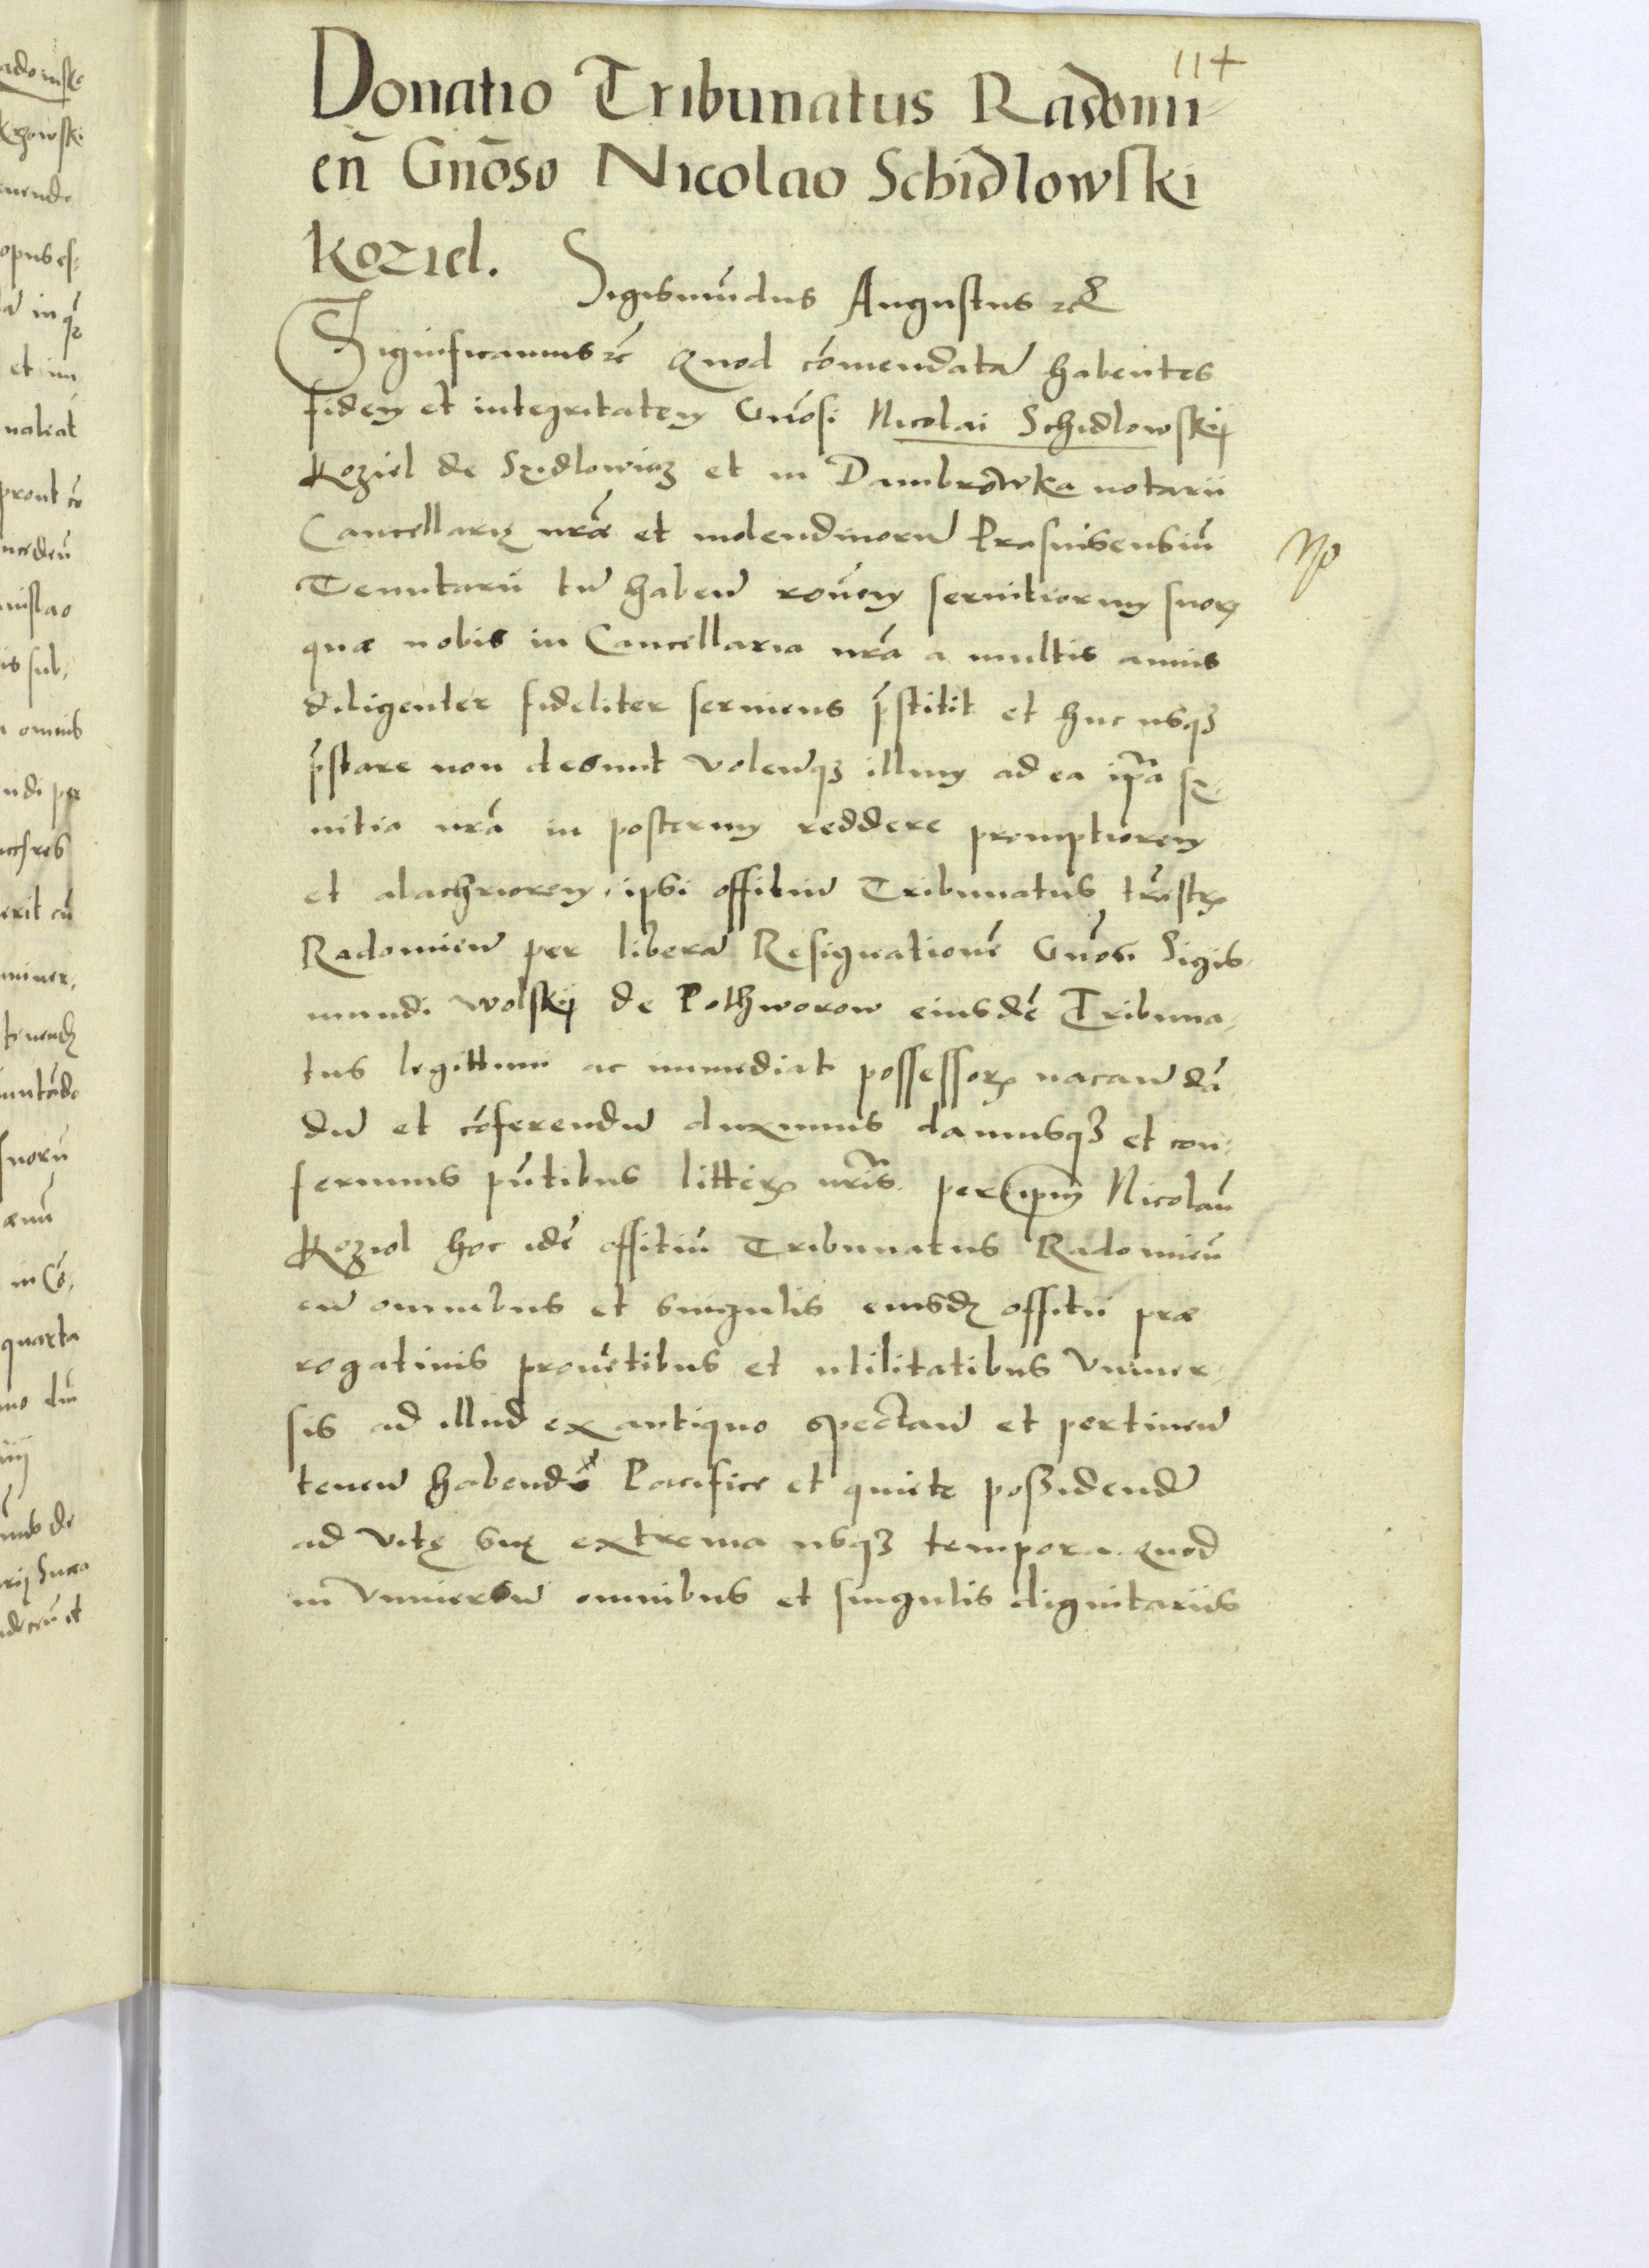 114
Donatio Tribunatus Radomi-
eñ Gñoso Nicolao Schidlowski
Koziel.
Sigismũdus Augustus &c
Significamus &c Quod cõmendatã habentes
fidem et integritatem Gñosi Nicolai Schidlowskij
Koziel de Szidlowiecz et in Dambrowka notarii
Cancellarię nrãe et molendinorũ Prasnisensiũ
Tenutarii tũ habeñ rõnem servitiorum suorꝝ
quae nobis in Cancellaria nrã a multis annis
diligenter fideliter serviens p̃stitit et huc usqꝫ
p̃stare non desinit Volen̄qꝫ illum ad ea ip̃a ser-
vitia nrã in posterum reddere promptiorem
et alachriorem, ipsi offitiũ Tribunatus trẽstrꝭ
Radomieñ per liberã Resignationẽ Gñosi Sigis-
mundi Wolskij de Pothworow eiusdẽ Tribuna-
tus legittimi ac immediati possessorꝭ vacañ dã-
dũ et cõferendũ duximus damusqꝫ et con-
ferimus p̃ntibus litterꝭ nrĩs. per ip̃um Nicolaũ
Koziol hoc idẽ offitiũ Tribunatus Radomieñ
cũ omnibus et singulis eiusdꝫ offitii prae
rogativis provẽtibus et utilitatibus Univer-
sis ad illud ex antiquo spectañ et pertineñ
teneñ habendũ Pacifice et quiete possidendũ
ad Vitę suę extrema usqꝫ tempora. Quod
in Universũ omnibus et singulis dignitariis